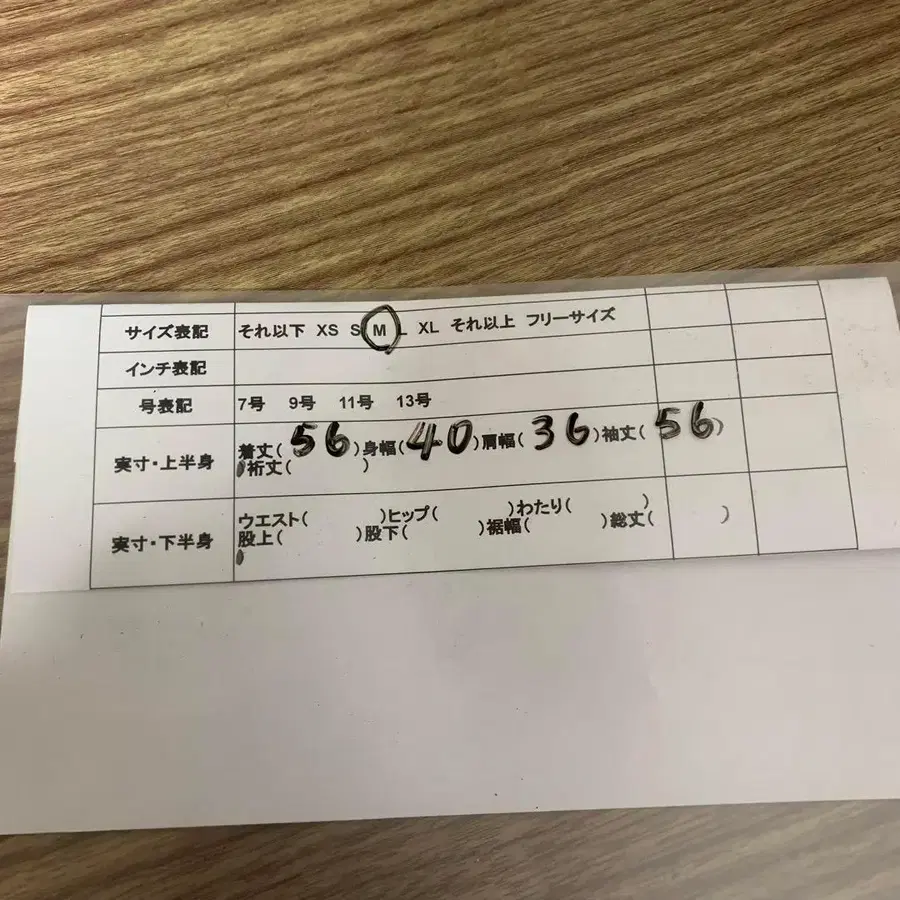 サイズ表記 それ以下 XS S M L XL それ以上 フリーサイズ
インチ表記
号表記 7号 9号 11号 13号
実寸・上半身 着丈( 56 )身幅( 40 )肩幅( 36 )袖丈( 56 )
裄丈( )
実寸・下半身 ウエスト( )ヒップ( )わたり( )
股上( )股下( )裾幅( )総丈( )